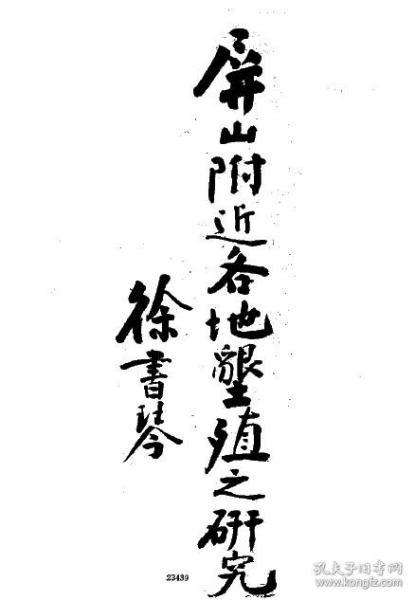 屏山附近各地墾殖之研究
徐書琴
23439
孔夫子旧书网
www.kongfz.com